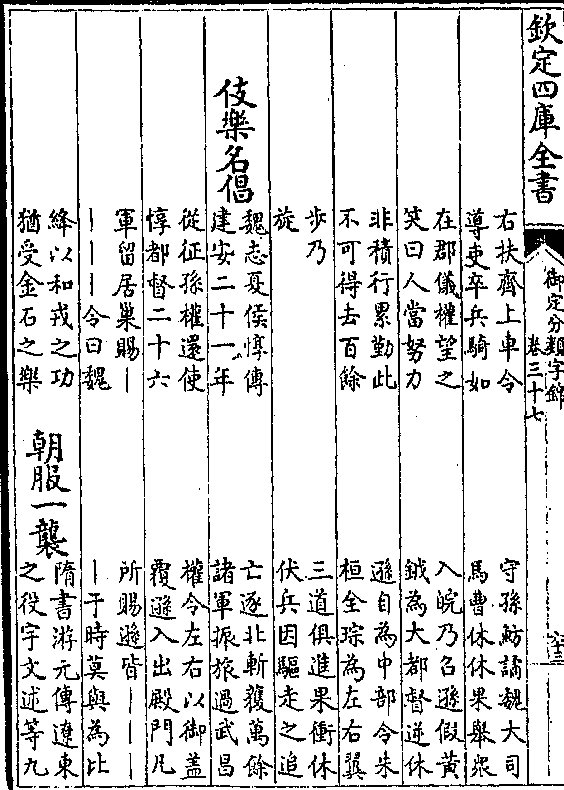 欽定四庫全書
御定分類字錦
卷三十七
右扶齊上車令
導吏卒兵騎如
在郡儀權望之
笑曰人當努力
非積行累勤此
不可得去百餘
步乃
旋
伎樂名倡
魏志夏侯惇傳
建安二十一年
從征孫權還使
惇都督二十六
軍留居巢賜丨
丨丨丨令曰魏
絳以和戎之功
猶受金石之樂
守孫魴譎魏大司
馬曹休休果舉衆
入皖乃召遜假黄
鉞為大都督逆休
遜自為中部令朱
桓全琮為左右翼
三道俱進果衝休
伏兵因驅走之追
亡逐北斬獲萬餘
諸軍振旅過武昌
權令左右以御蓋
覆遜入出殿門凡
所賜遜皆丨丨丨
丨于時莫與為比
朝服一襲
隋書游元傳遼東
之役宇文述等九